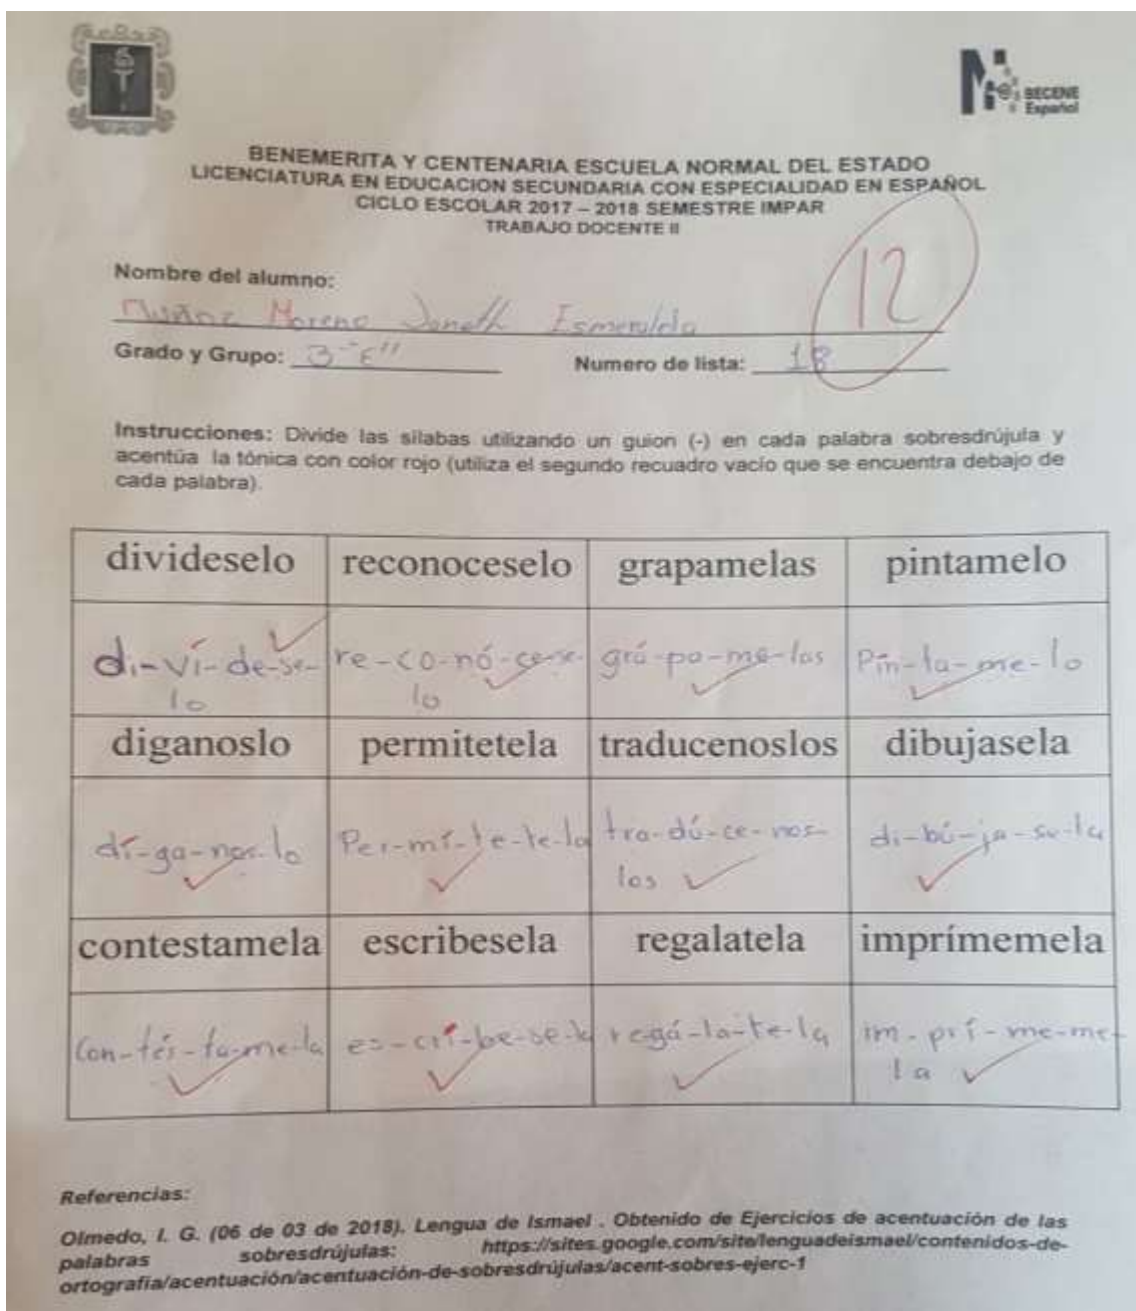 BECENE
Español
BENEMERITA Y CENTENARIA ESCUELA NORMAL DEL ESTADO
LICENCIATURA EN EDUCACION SECUNDARIA CON ESPECIALIDAD EN ESPAÑOL
CICLO ESCOLAR 2017 – 2018 SEMESTRE IMPAR
TRABAJO DOCENTE II
12
Nombre del alumno:
Moreno Janeth Esmeralda
Grado y Grupo: 3-"E" Numero de lista: 18
Instrucciones: Divide las silabas utilizando un guion (-) en cada palabra sobresdrújula y
acentúa la tónica con color rojo (utiliza el segundo recuadro vacío que se encuentra debajo de
cada palabra).
divideselo reconoceselo grapamelas pintamelo
di-ví-de-se- re-co-nó-ce-se- grá-pa-me-las Pín-ta-me-lo
lo lo
diganoslo permitetela traducenoslos dibujasela
dí-ga-nos-lo Per-mí-te-te-la tra-dú-ce-nos- di-bú-ja-se-la
los
contestamela escribesela regalatela imprímemela
Con-tés-ta-me-la es-crí-be-se-la regá-la-te-la im-prí-me-me-
la
Referencias:
Olmedo, I. G. (06 de 03 de 2018). Lengua de Ismael . Obtenido de Ejercicios de acentuación de las
palabras sobresdrújulas: https://sites.google.com/site/lenguadeismael/contenidos-de-
ortografia/acentuación/acentuación-de-sobresdrújulas/acent-sobres-ejerc-1